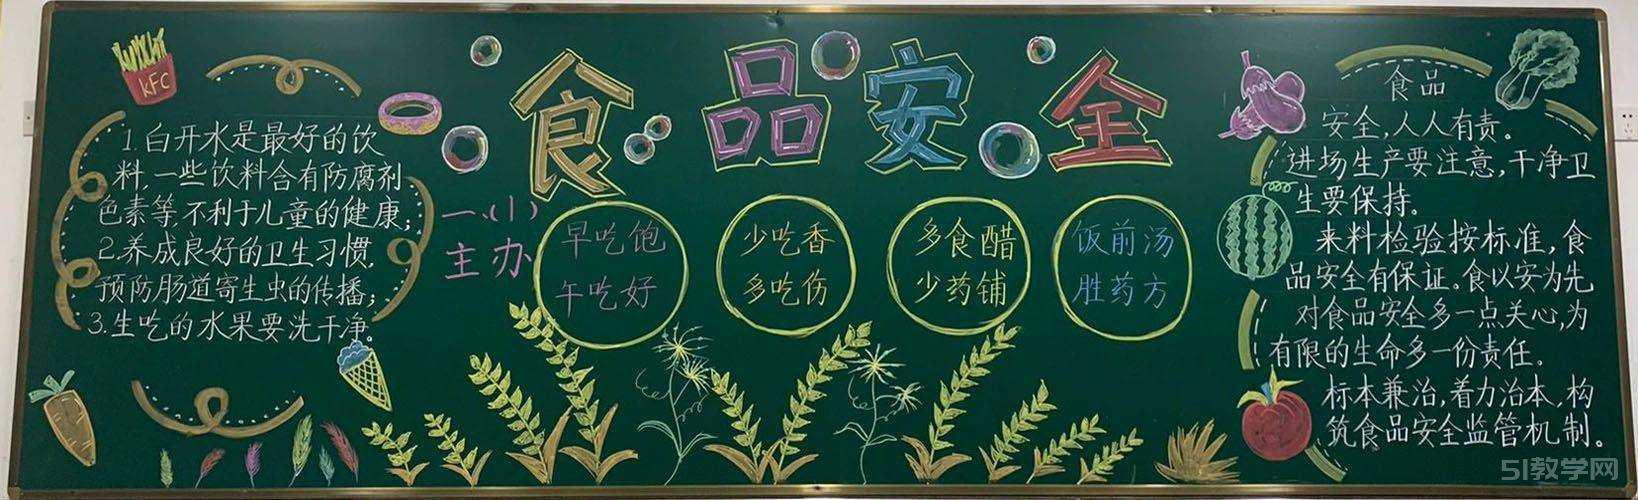 食品安全
KFC
1.白开水是最好的饮
料,一些饮料含有防腐剂
色素等,不利于儿童的健康;
2.养成良好的卫生习惯,
预防肠道寄生虫的传播;
3.生吃的水果要洗干净。
一、(1)
主办
早吃饱
午吃好
少吃香
多吃伤
多食醋
少药铺
饭前汤
胜药方
食品
安全,人人有责。
进场生产要注意,干净卫
生要保持。
来料检验按标准,食
品安全有保证。食以安为先
对食品安全多一点关心,为
有限的生命多一份责任。
标本兼治,着力治本,构
筑食品安全监管机制。
51教学网